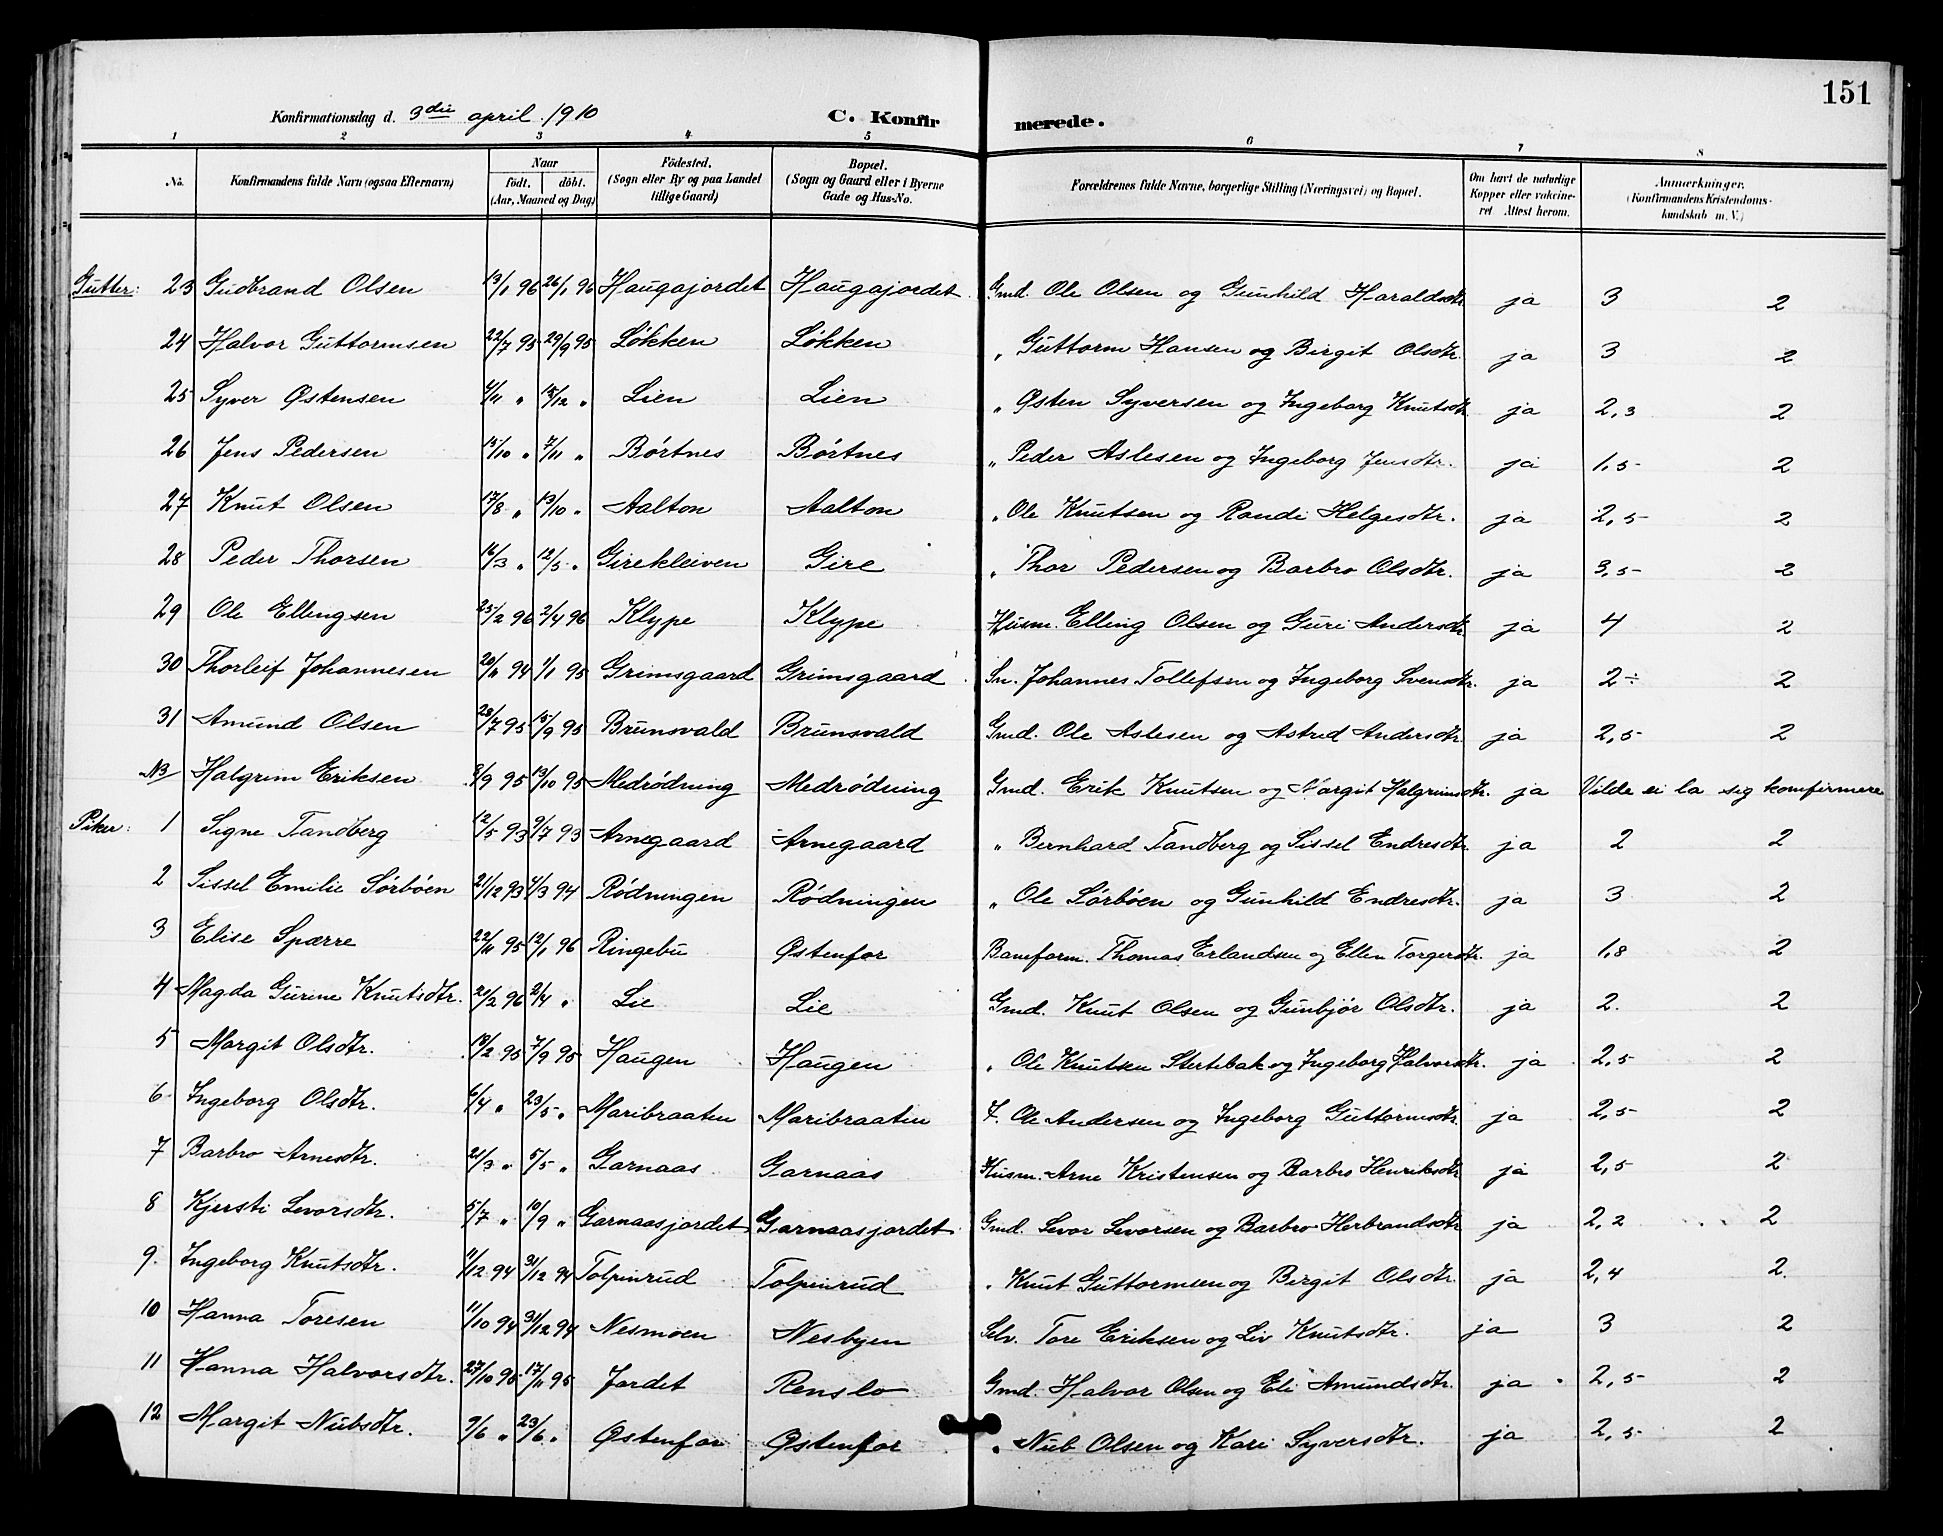 151
Konfirmationsdag d. 3die april 1910 C. Konfirmerede.
1 2 3 4 5 6 7 8
No. Konfirmandens fulde Navn (ogsaa Efternavn) Naar födt. döbt. (Aar, Maaned og Dag) Födested. (Sogn eller By og paa Landet tillige Gaard) Bopæl. (Sogn og Gaard eller i Byerne Gade og Hus-No. Forældrenes fulde Navne, borgerlige Stilling (Næringsvei) og Bopæl. Om havt de naturlige Kopper eller vakcineret Attest herom. Anmærkninger. (Konfirmandens Kristendomskundskab m. V.)
Gutter: 23 Gudbrand Olsen 13/1 96 26/1 96 Haugajordet Haugajordet Gmd. Ole Olsen og Gunhild Haraldsdtr. ja 3 2
24 Halvor Guttormsen 22/7 95 29/9 95 Løkken Løkken " Guttorm Hansen og Birgit Olsdtr. ja 3 2
25 Syver Østensen 4/11 " 15/12 " Lien Lien " Østen Syversen og Ingeborg Knutsdtr. ja 2,3 2
26 Jens Pedersen 15/10 " 7/11 " Børtnes Børtnes " Peder Aslesen og Ingeborg Jensdtr. ja 1,5 2
27 Knut Olsen 17/8 " 13/10 " Aalton Aalton " Ole Knutsen og Randi Helgesdtr. ja 2,5 2
28 Peder Thorsen 16/3 " 12/5 " Girekleiven Gire " Thor Pedersen og Barbro Olsdtr. ja 3,5 2
29 Ole Ellingsen 25/2 96 2/4 96 Klype Klype Husm. Elling Olsen og Guri Andersdtr. ja 4 2
30 Thorleif Johannesen 20/11 94 1/1 95 Grimsgaard Grimsgaard Sn. Johannes Tollefsen og Ingeborg Svensdtr. ja 2÷ 2
31 Amund Olsen 23/7 95 15/9 95 Brunsvald Brunsvald Gmd. Ole Aslesen og Astrid Andersdtr. ja 2,5 2
NB Halgrim Eriksen 8/9 95 13/10 95 Medrødning Medrødning Gmd. Erik Knutsen og Margit Halgrimsdtr. ja Vilde ei la sig komfirmere
Piker: 1 Signe Tandberg 12/5 93 9/7 93 Arnegaard Arnegaard " Bernhard Tandberg og Sissel Endresdtr. ja 2 2
2 Sissel Emilie Sørbøen 21/12 93 4/3 94 Rødningen Rødningen " Ole Sørbøen og Gunhild Endresdtr. ja 3 2
3 Elise Spærre 22/11 95 12/1 96 Ringebu Østenfor Baneform. Thomas Erlandsen og Ellen Torgersdtr. ja 1,8 2
4 Magda Gurine Knutsdtr. 21/2 96 2/4 " Lie Lie Gmd. Knut Olsen og Gunbjør Olsdtr. ja 2. 2
5 Margit Olsdtr. 19/2 95 7/9 95 Haugen Haugen " Ole Knutsen Stertebak og Ingeborg Halvorsdtr. ja 2,5 2
6 Ingeborg Olsdtr. 6/4 " 23/5 " Maribraaten Maribraaten F. Ole Andersen og Ingeborg Guttormsdtr. ja 2,5 2
7 Barbro Arnesdtr. 21/3 " 5/5 " Garnaas Garnaas Husm. Arne Kristensen og Barbro Henriksdtr. ja 2,5 2
8 Kjersti Levorsdtr. 5/7 " 10/9 " Garnaasjordet Garnaasjordet Gmd. Levor Levorsen og Barbro Herbrandsdtr ja 2,2 2
9. Ingeborg Knutsdtr. 11/12 94 31/12 94 Tolpinrud Tolpinrud " Knut Guttormsen og Birgit Olsdtr. ja 2,4 2.
10 Hanna Toresen 11/10 94 31/12 94 Nesmoen Nesbyen Selv. Tore Eriksen og Liv Knutsdtr. ja 3 2
11 Hanna Halvorsdtr. 27/10 95 17/11 95 Jordet Renslo Gmd. Halvor Olsen og Eli Amundsdtr. ja 2,5 2
12 Margit Nubsdtr. 9/6 " 23/6 " Østenfor Østenfor " Nub Olsen og Kari Syversdtr. ja 2,5 2